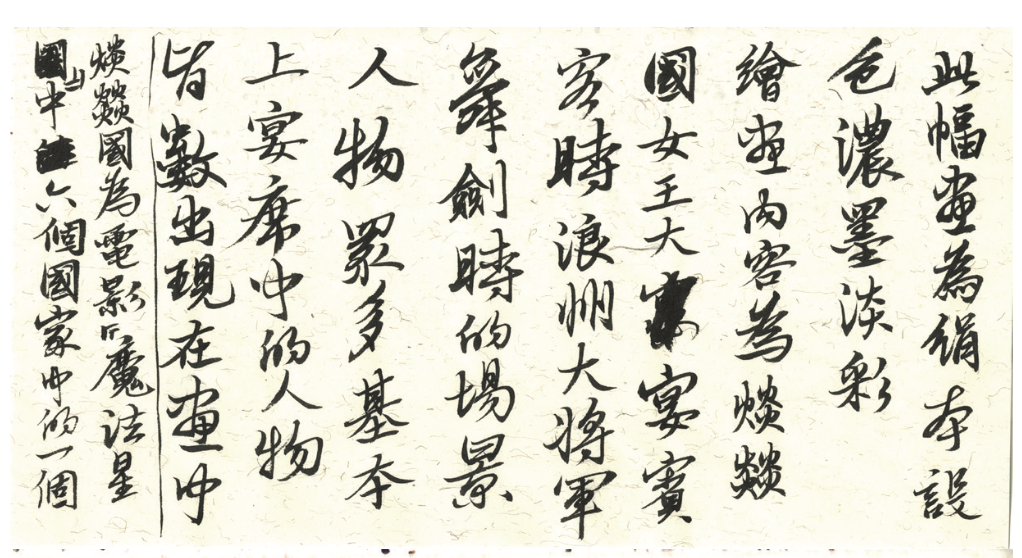 此幅畫為絹本設
色濃墨淡彩
繪畫內容為焱燚
國女王大宴賓
客時浪州大將軍
舞劍時的場景
人物眾多基本
上宴席中的人物
皆數出現在畫中
焱燚國為電影《魔法星
國》中六個國家中的一個